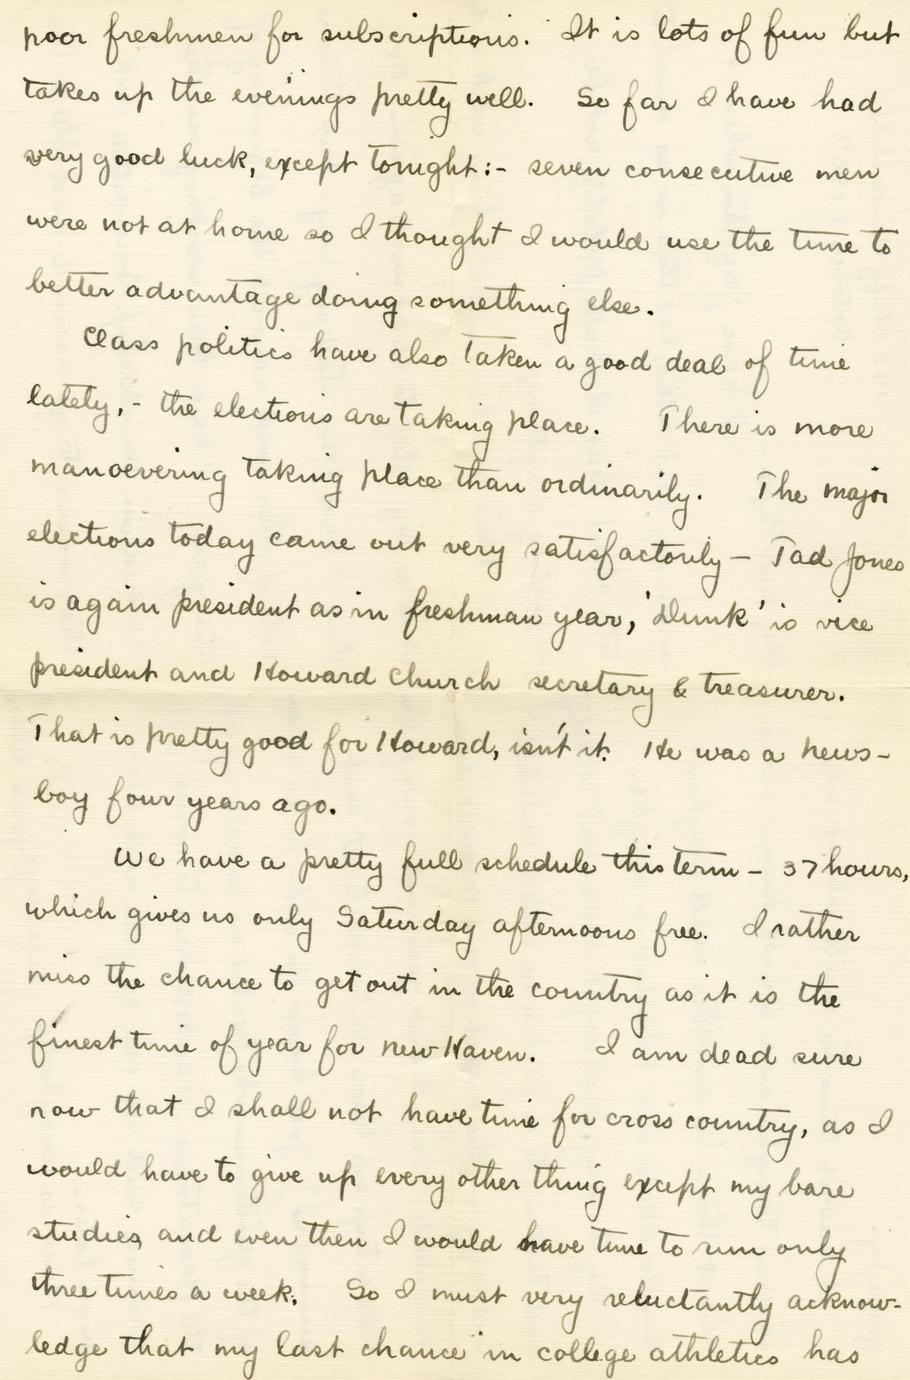 poor freshmen for subscriptions. It is lots of fun but
takes up the evenings pretty well. So far I have had
very good luck, except tonight:- seven consecutive men
were not at home so I thought I would use the time to
better advantage doing something else.
Class politics have also taken a good deal of time
lately,- the elections are taking place. There is more
manoevering taking place than ordinarily. The major
elections today came out very satisfactorily – Tad Jones
is again president as in freshman year, 'Dunk' is vice
president and Howard Church secretary & treasurer.
That is pretty good for Howard, isn't it. He was a news-
boy four years ago.
We have a pretty full schedule this term – 37 hours,
which gives us only Saturday afternoons free. I rather
miss the chance to get out in the country as it is the
finest time of year for new Haven. I am dead sure
now that I shall not have time for cross country, as I
would have to give up every other thing except my bare
studies, and even then I would have time to run only
three times a week. So I must very reluctantly acknow-
ledge that my last chance in college athletics has